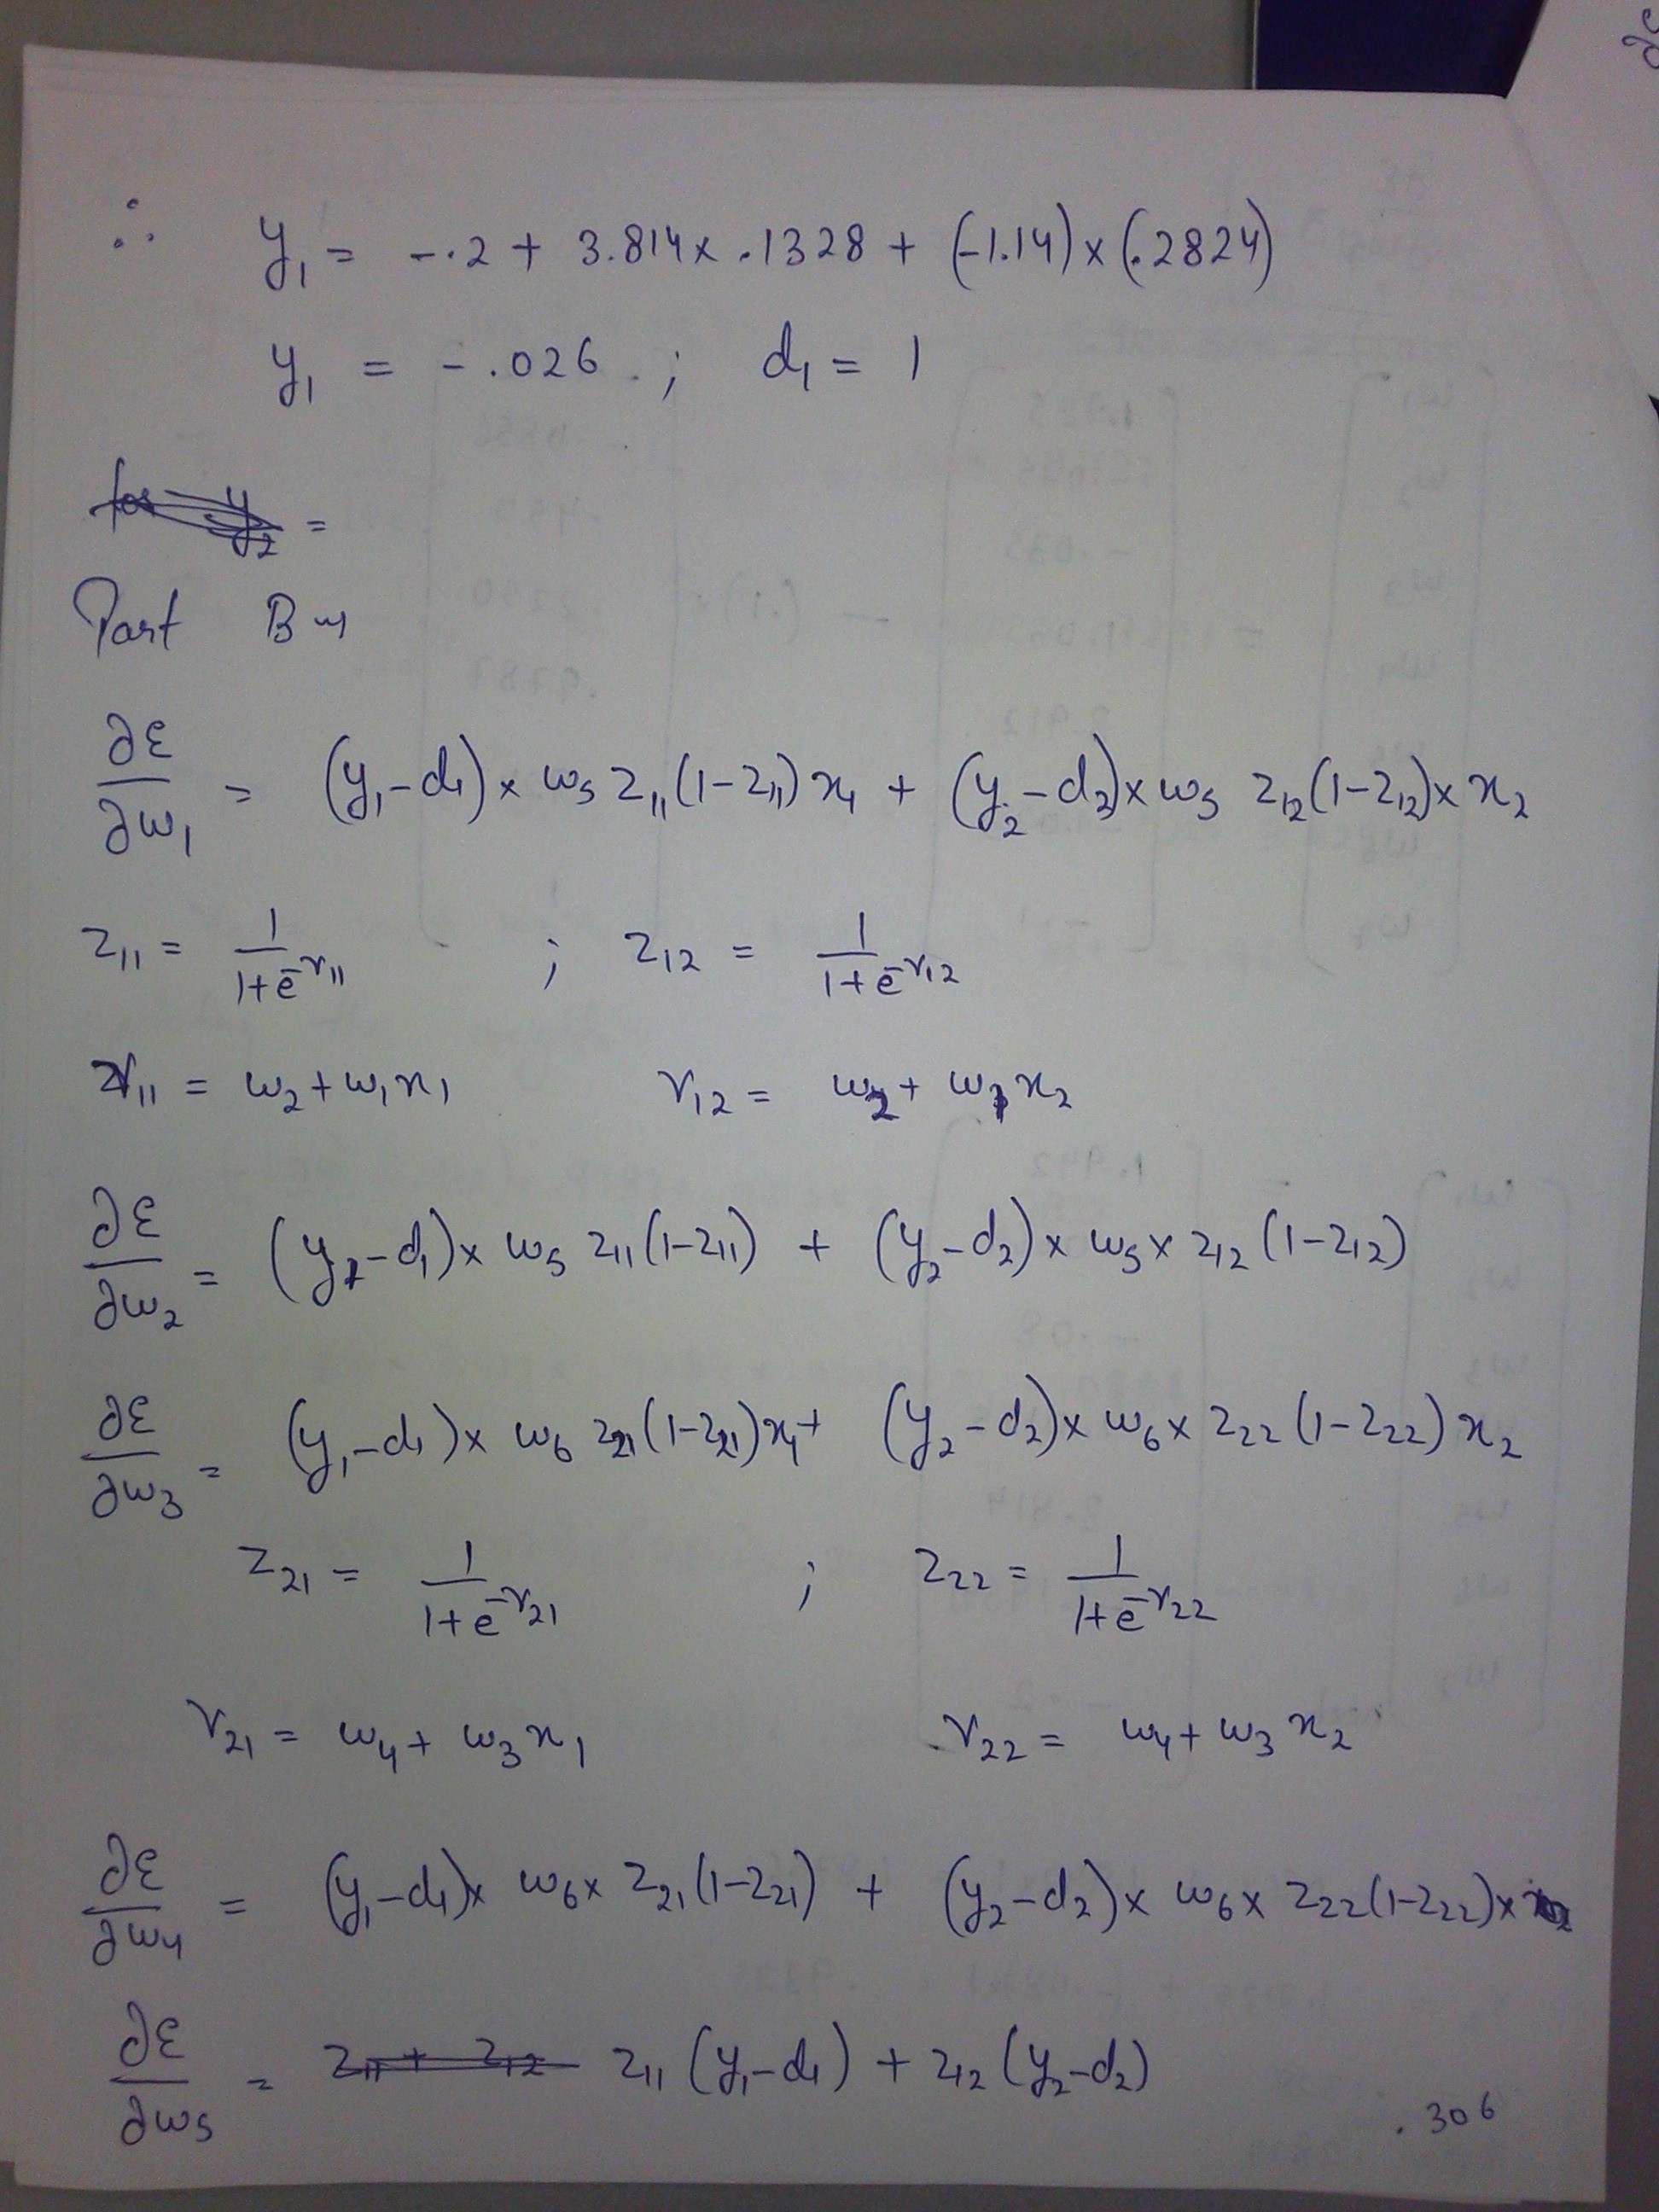 ∴ y₁ = -.2 + 3.814 × .1328 + (-1.14) × (.2824)
y₁ = -.026 ; d₁ = 1
for y₂ =
Part B →
∂ε/∂w₁ = (y₁-d₁) × w₅ z₁₁(1-z₁₁) x₁ + (y₂-d₂) × w₅ z₁₂(1-z₁₂) × x₂
z₁₁ = 1/(1+e^-v₁₁) ; z₁₂ = 1/(1+e^-v₁₂)
v₁₁ = w₂ + w₁x₁ v₁₂ = w₂ + w₁x₂
∂ε/∂w₂ = (y₁-d₁) × w₅ z₁₁(1-z₁₁) + (y₂-d₂) × w₅ × z₁₂(1-z₁₂)
∂ε/∂w₃ = (y₁-d₁) × w₆ z₂₁(1-z₂₁) x₁ + (y₂-d₂) × w₆ × z₂₂(1-z₂₂) x₂
z₂₁ = 1/(1+e^-v₂₁) ; z₂₂ = 1/(1+e^-v₂₂)
v₂₁ = w₄ + w₃x₁ v₂₂ = w₄ + w₃x₂
∂ε/∂w₄ = (y₁-d₁) × w₆ × z₂₁(1-z₂₁) + (y₂-d₂) × w₆ × z₂₂(1-z₂₂) ×
∂ε/∂w₅ = z₁₁ + z₁₂ z₁₁(y₁-d₁) + z₁₂(y₂-d₂)
.306